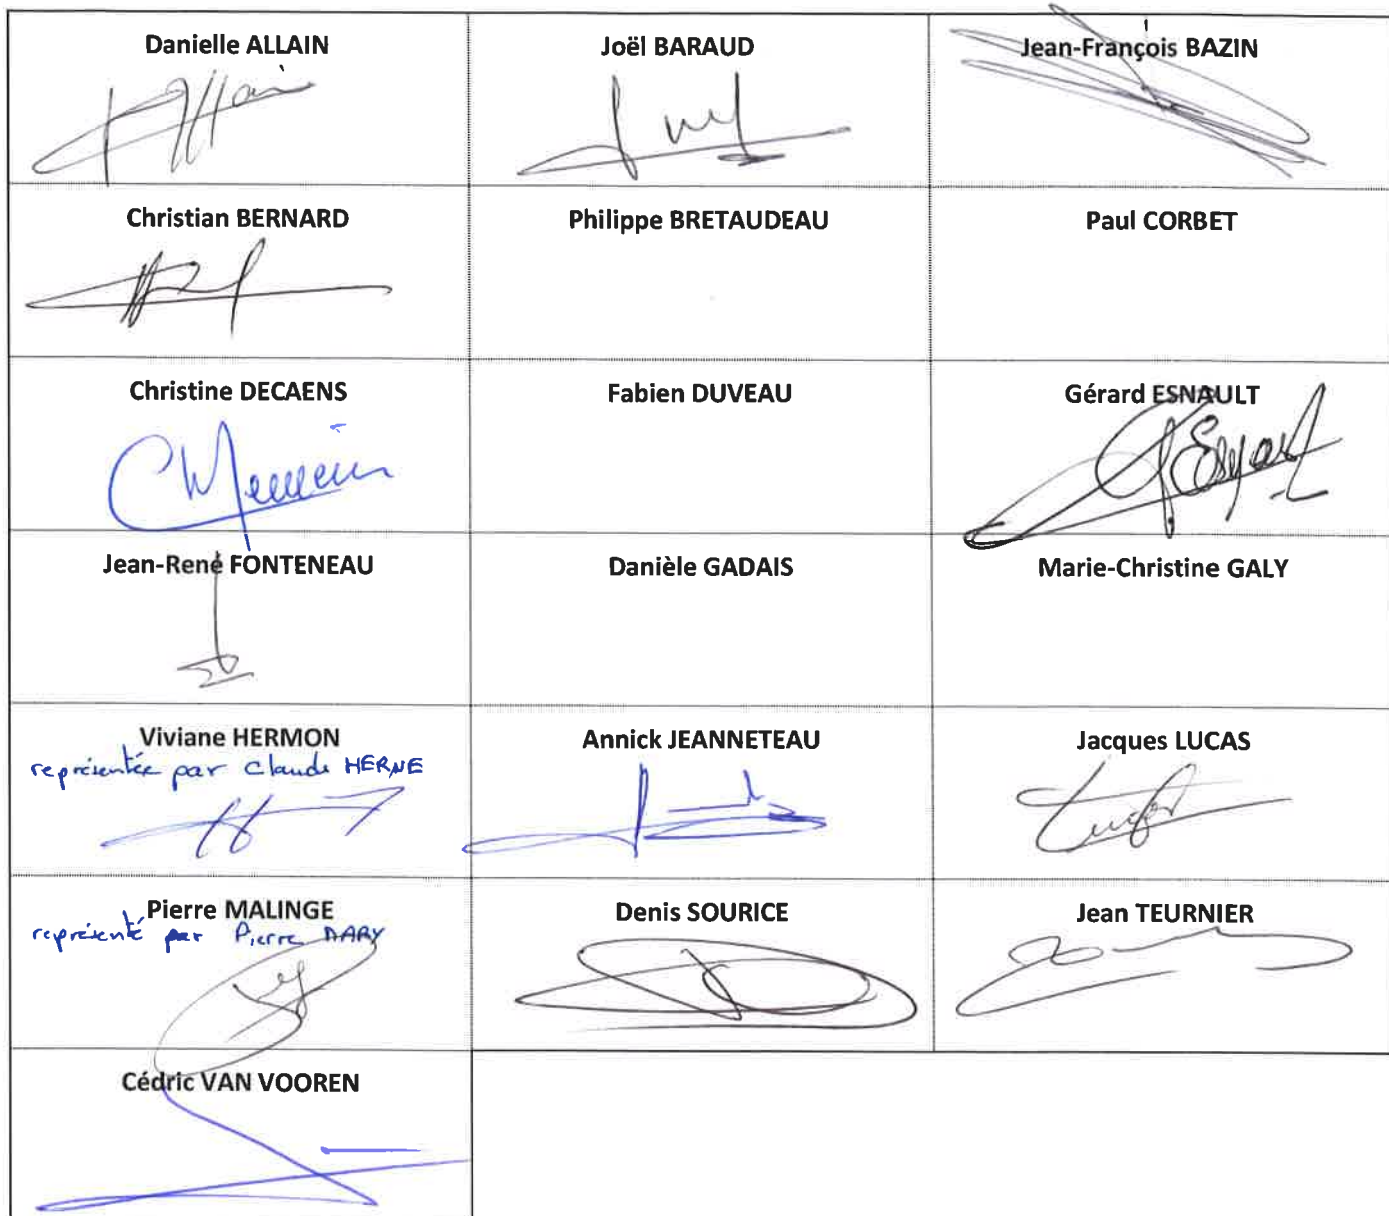 Danielle ALLAIN
Joël BARAUD
Jean-François BAZIN
Christian BERNARD
Philippe BRETAUDEAU
Paul CORBET
Christine DECAENS
Fabien DUVEAU
Gérard ESNAULT
Jean-René FONTENEAU
Danièle GADAIS
Marie-Christine GALY
Viviane HERMON
représentée par Claude HERNE
Annick JEANNETEAU
Jacques LUCAS
Pierre MALINGE
représenté par Pierre DARY
Denis SOURICE
Jean TEURNIER
Cédric VAN VOOREN